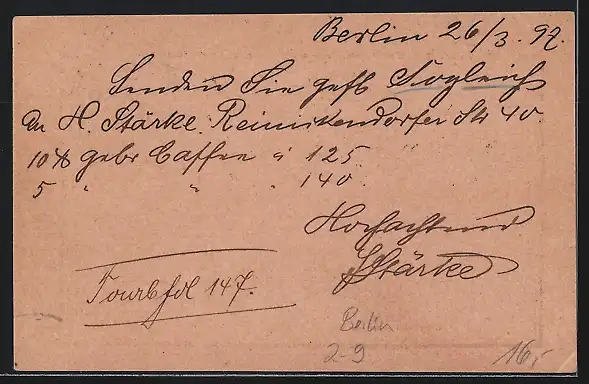 Berlin 26/3. 97.
Senden Sie gefl. sogleich
an H. Stärke. Reinickendorfer Str 40.
10 ℔ gebr Caffee á 125 "
5 " " . 140.
Hochachtend
HStärke
147.
Berlin
2-9
16,-